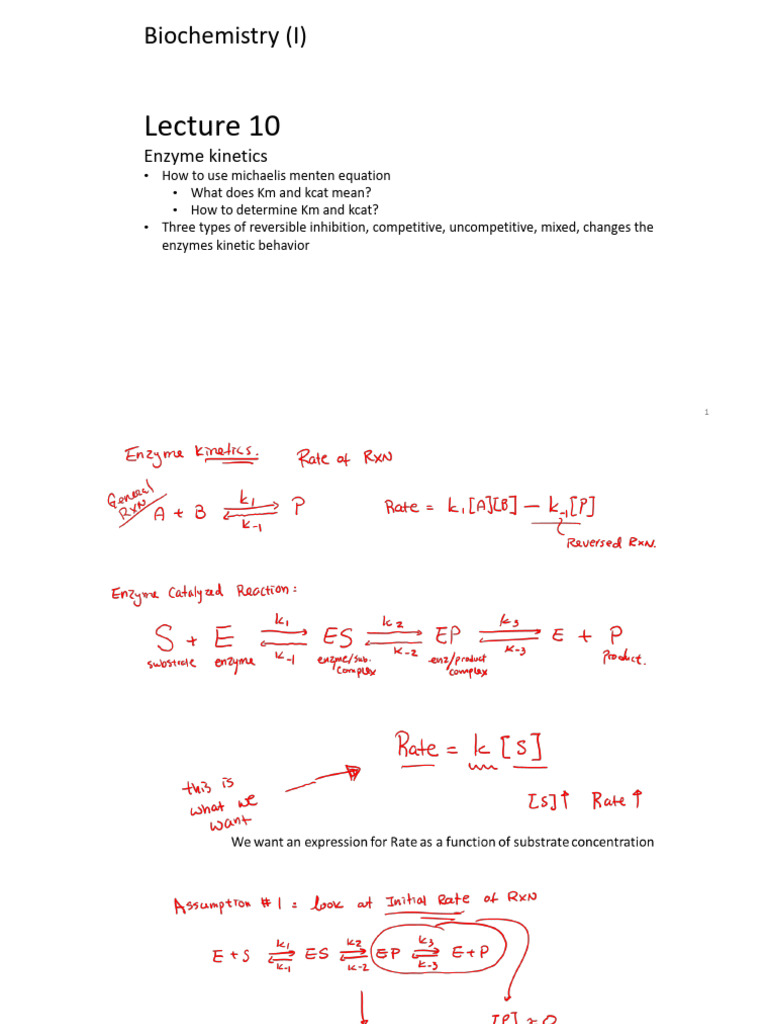 Biochemistry (I)
Lecture 10
Enzyme kinetics
• How to use michaelis menten equation
• What does Km and kcat mean?
• How to determine Km and kcat?
• Three types of reversible inhibition, competitive, uncompetitive, mixed, changes the
enzymes kinetic behavior
1
Enzyme Kinetics. Rate of RXN
General
RXN
A + B k1 k-1 P
Rate = k1[A][B] - k-1[P]
Reversed RXN.
Enzyme Catalyzed Reaction:
S + E k1 k-1 ES k2 k-2 EP k3 k-3 E + P
substrate enzyme enzme/sub. complex enz/product complex Product.
Rate = k [S]
this is
what we
want
[S]↑ Rate↑
We want an expression for Rate as a function of substrate concentration
Assumption #1: look at Initial Rate of RXN
E + S k1 k-1 ES k2 k-2 EP k3 k-3 E+P
[P] ≈ 0